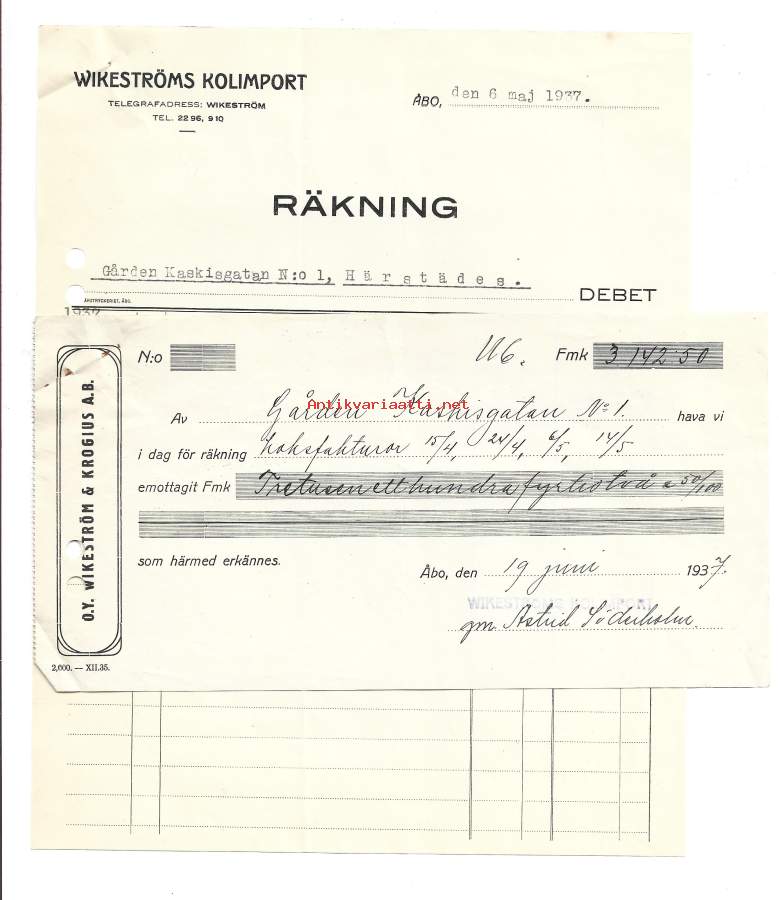 WIKESTRÖMS KOLIMPORT
TELEGRAFADRESS: WIKESTRÖM
TEL. 22 96, 9 10
ÅBO, den 6 maj 1937.
RÄKNING
Gården Kaskisgatan N:o 1, Härstädes.
DEBET
1937
O.Y. WIKESTRÖM & KROGIUS A.B.
N:o
Fmk 3 142:50
Antikvariaatti.net
Av Gården Kaskisgatan No 1. hava vi
i dag för räkning koksfakturor 15/4, 24/4, 6/5, 14/5
emottagit Fmk Tretusenetthundrafyrtiotvå & 50/100
som härmed erkännes.
Åbo, den 19 juni 1937.
WIKESTRÖMS KOLIMPORT
gm. Astrid Söderholm.
2,000. — XII.35.